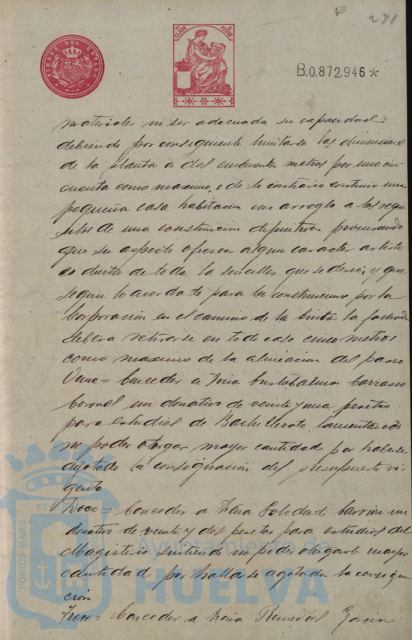 271
B.0.872.946*
materiales ni ser adecuada su capacidad
debiendo por consiguiente limitarse las dimensiones
de la planta a dos cincuenta metros por uno cin-
cuenta como maximo, o de lo contrario construir una
pequeña casa habitacion con arreglo a los requi-
sitos de una construccion definitiva procurando
que su aspecto ofrezca algun caracter artisti-
co dentro de toda la sencillez que se desee, y que
segun lo acordado para las construcciones por la
Corporación en el camino de la la fachada
debera retirarse en todo caso cinco metros
como maximo de la alineacion del paseo
Once= Conceder a Doña Carrasco
Coronel un donativo de veinte y una pesetas
para estudios de Bachillerato lamentando
no poder otorgar mayor cantidad por haberse
agotado la consignación del presupuesto vi-
gente
Doce= Conceder a Doña Soledad Carrión un
donativo de veinte y dos pesetas para estudios del
Magisterio sintiendo no poder otorgarle mayor
cantidad por hallarse agotada la consigna-
ción
Trece= Conceder a Doña Remedios Garcia
PORTUS MARIS
Ayuntamiento de
HUELVA